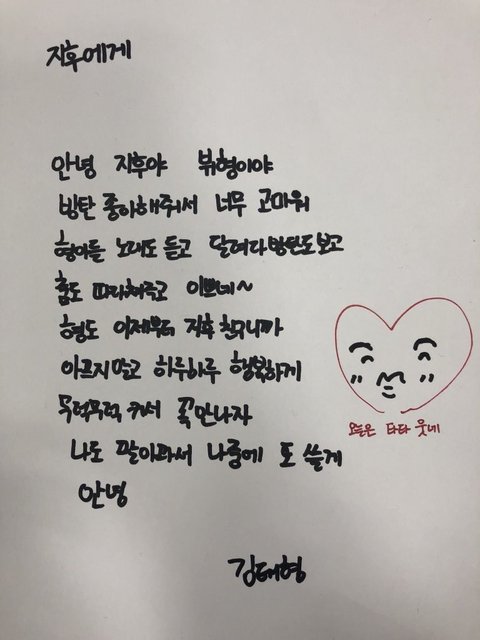 지후에게
안녕 지후야 뷔형이야
방탄 좋아해줘서 너무 고마워
형아들 노래도 듣고 달려라방탄도보고
춤도 따라해주고 이쁘네~
형도 이제부터 지후 친구니까
아프지말고 하루하루 행복하게
무럭무럭 커서 꼭만나자
나도 팔아파서 나중에 또 쓸게
안녕
김태형
오늘은 타타 웃네